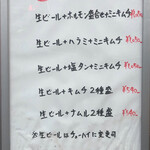 生ビール+ホルモン盛合せ+ミニキムチ
生ビール+ハラミ+ミニキムチ
生ビール+塩タン+ミニキムチ
生ビール+キムチ2種盛
生ビール+ナムル2種盛
※生ビールはチューハイに変更可